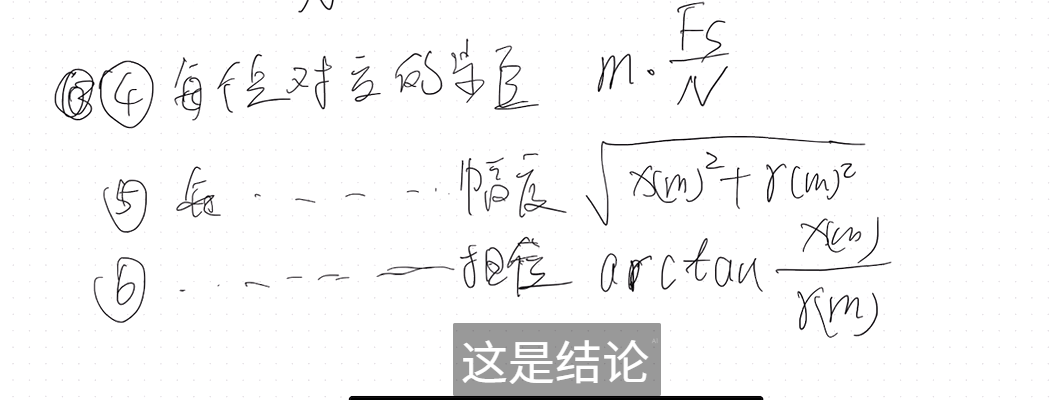 N
④ 每个值对应的学区 m·Fs/N
⑤ 每 · – – – ·· 幅度 √x(m)²+r(m)²
⑥ · · · – – – — 相位 arctan x(m)/r(m)
这是结论